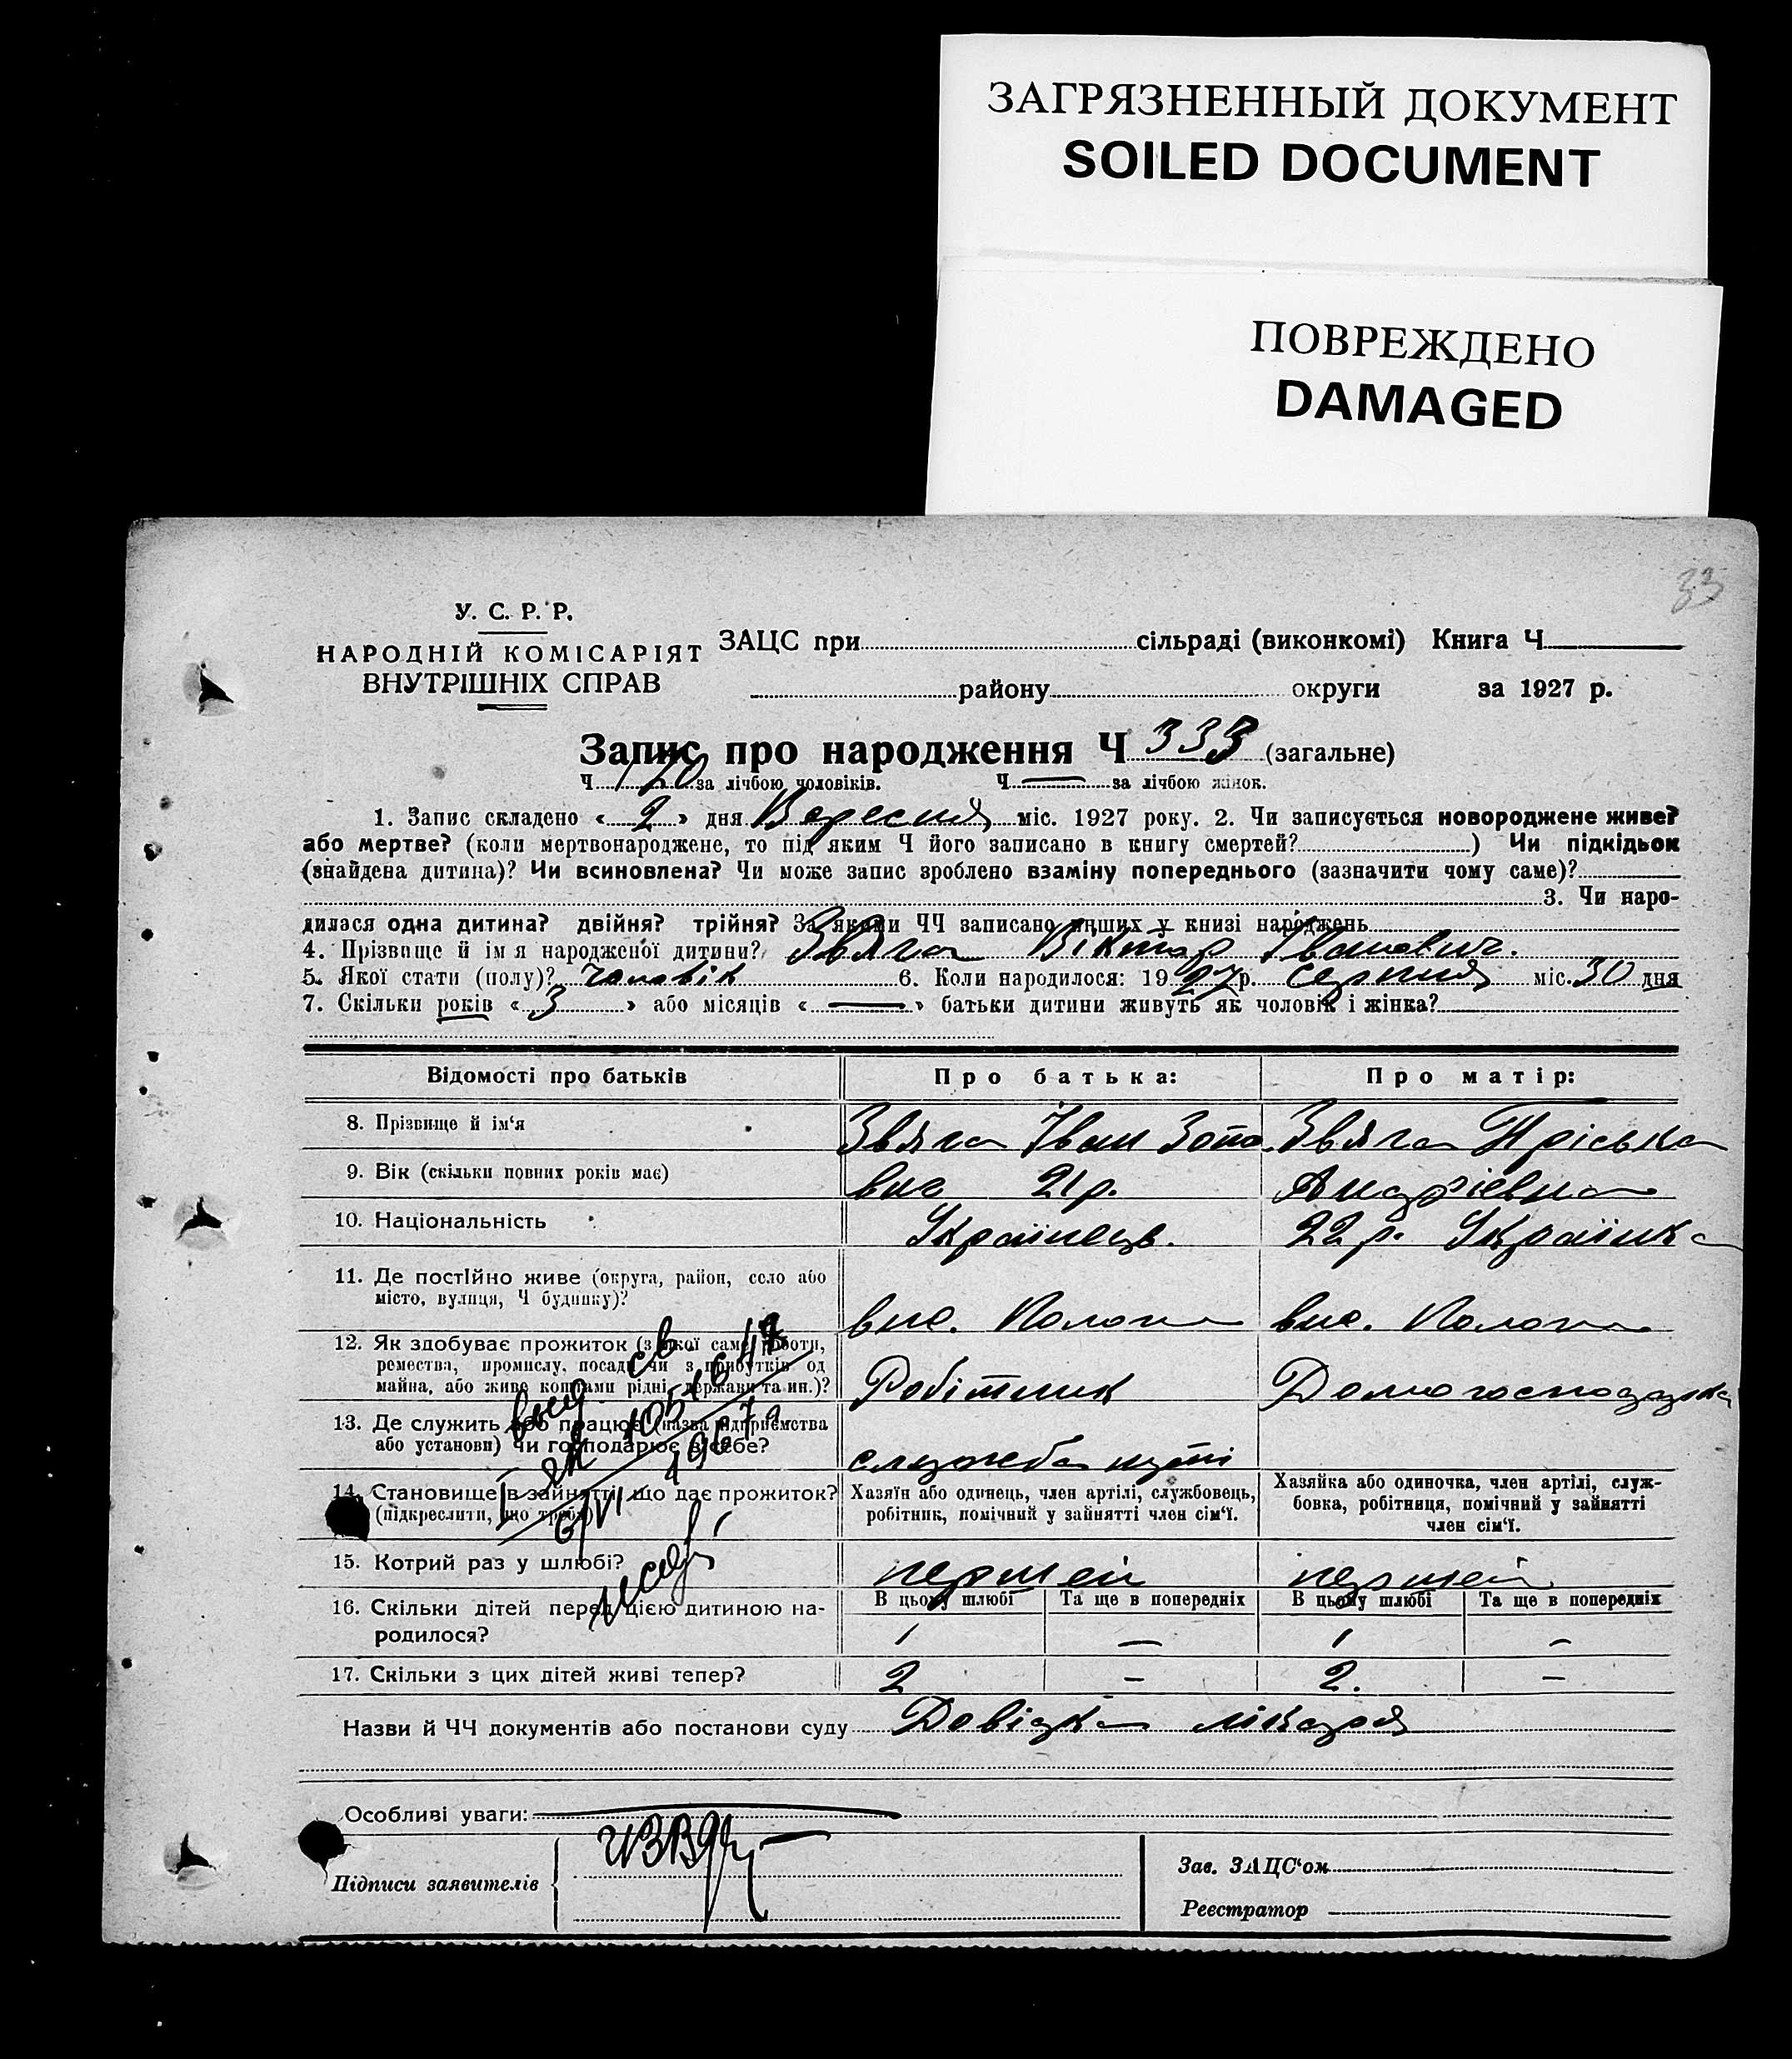 ЗАГРЯЗНЕННЫЙ ДОКУМЕНТ
SOILED DOCUMENT
ПОВРЕЖДЕНО
DAMAGED
33
У. С. Р. Р.
НАРОДНІЙ КОМІСАРІЯТ
ВНУТРІШНІХ СПРАВ
ЗАЦС при сільраді (виконкомі) Книга Ч
району округи за 1927 р.
Запис про народження Ч 333 (загальне)
Ч 170 за лічбою чоловіків. Ч — за лічбою жінок.
1. Запис складено « 2 » дня Вересня міс. 1927 року. 2. Чи записується новороджене живе?
або мертве? (коли мертвонароджене, то під яким Ч його записано в книгу смертей? ) Чи підкідьок
(знайдена дитина)? Чи всиновлена? Чи може запис зроблено взаміну попереднього (зазначити чому саме)?
3. Чи наро-
дилася одна дитина? двійня? трійня? За якими ЧЧ записано инших у книзі народжень
4. Прізвище й ім я народженої дитини? Звяга Віктор Іванович.
5. Якої стати (полу)? чоловік 6. Коли народилося: 1927 р. серпня міс. 30 дня
7. Скільки років « 3 » або місяців « — » батьки дитини живуть як чоловік і жінка?
Відомості про батьків Про батька: Про матір:
8. Прізвище й ім'я Звяга Іван Зото Звяга Пріська
9. Вік (скільки повних років має) вич 21 р. Андріевна
10. Національність Українець. 22 р. Українка
11. Де постійно живе (округа, район, село або
місто, вулиця, Ч будинку)?
12. Як здобуває прожиток (з якої саме роботи,
ремества, промислу, посади чи з прибутків од
майна, або живе коштами рідні, держави та ин.)? Робітник Домогосподарка
13. Де служить або працює (назва підприємства
або установи) чи господарює в себе? служба путі
14. Становище в зайнятті, що дає прожиток?
(підкреслити, що треба)
Хазяїн або одинець, член артілі, службовець,
робітник, помічний у зайнятті член сім'ї.
Хазяйка або одиночка, член артілі, служ-
бовка, робітниця, помічний у зайнятті
член сім'ї.
15. Котрий раз у шлюбі? перший перший
16. Скільки дітей перед цією дитиною на-
родилося?
В цьому шлюбі Та ще в попередніх В цьому шлюбі Та ще в попередніх
1 — 1 —
17. Скільки з цих дітей живі тепер? 2 — 2. —
Назви й ЧЧ документів або постанови суду Довідка лікаря
Особливі уваги:
Підписи заявителів
Зав. ЗАЦС'ом
Реєстратор